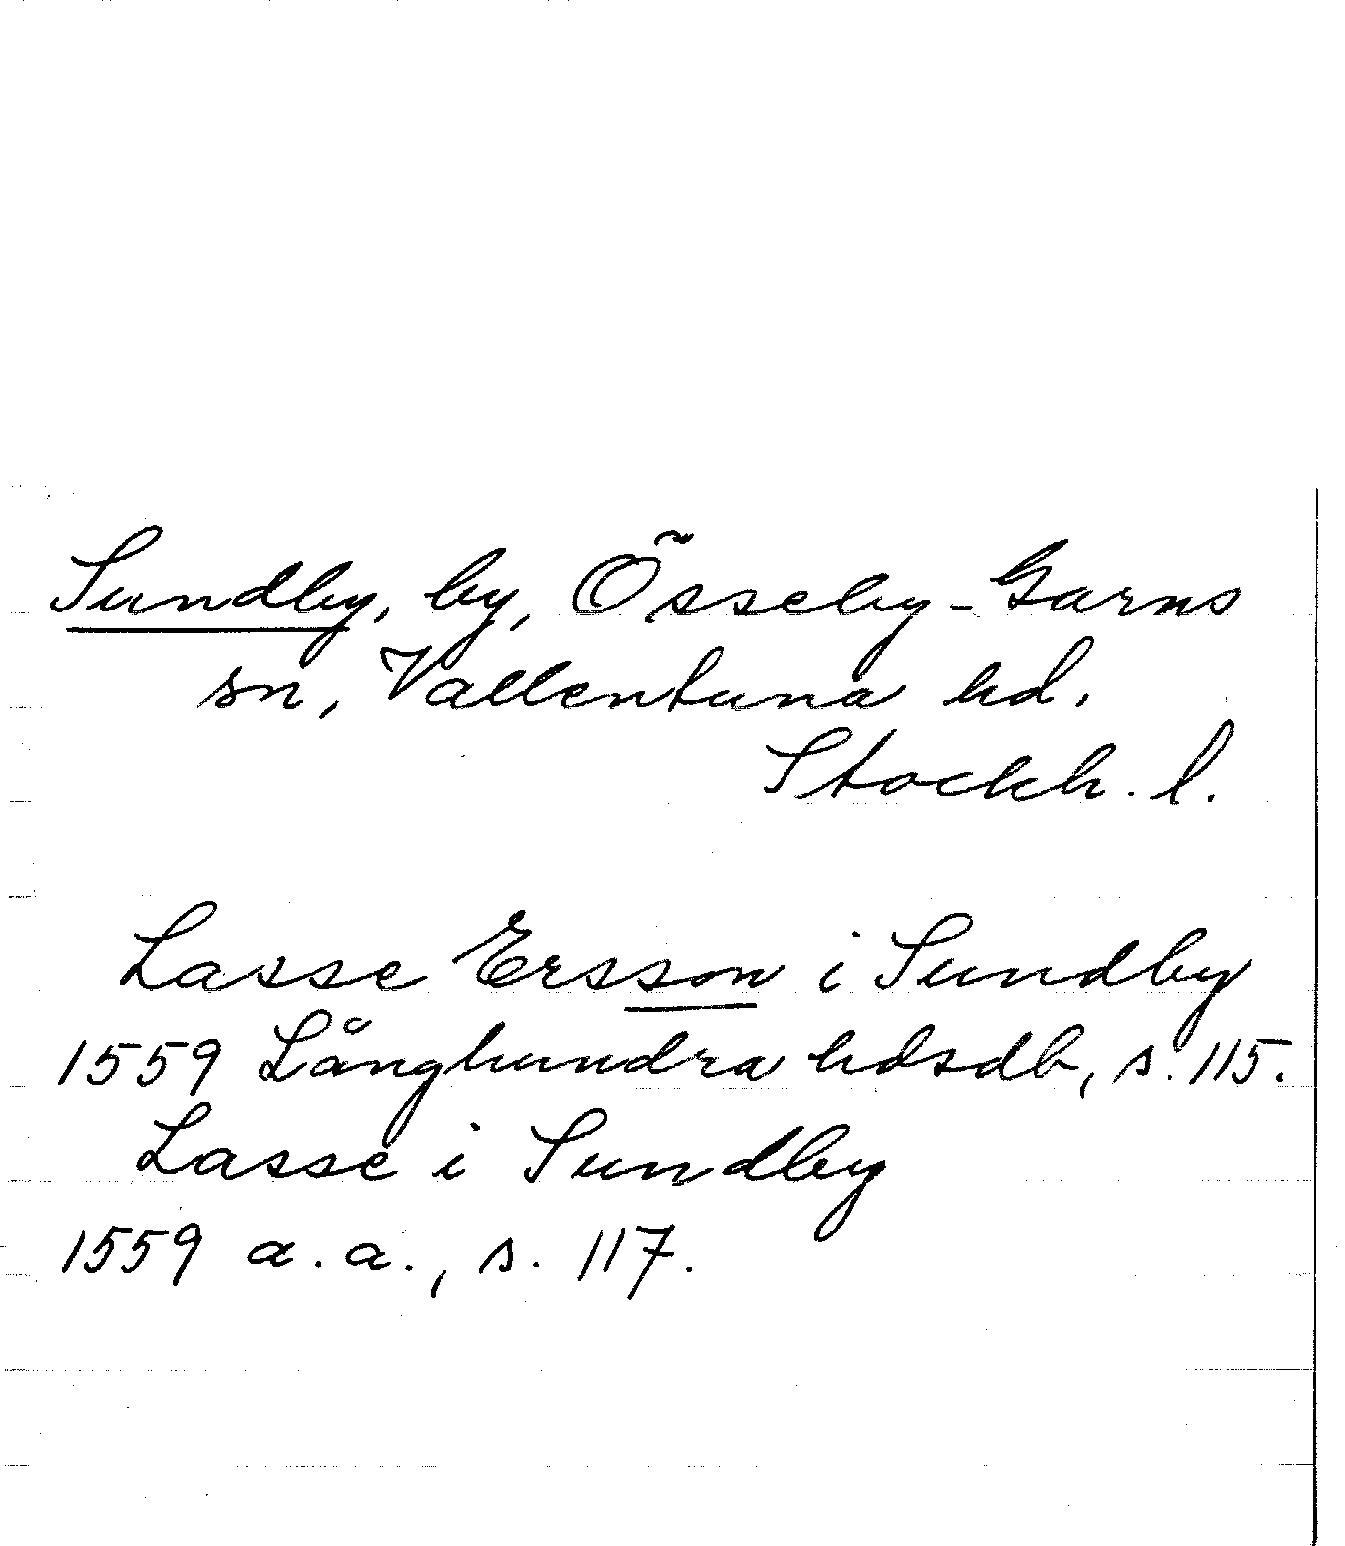 Sundby, by, Össeby-Garns
sn, Vallentuna hd.
Stockh. l.
Lasse Ersson i Sundby
1559 Långhundra hdsdb, s. 115.
Lasse i Sundby
1559 a. a., s. 117.